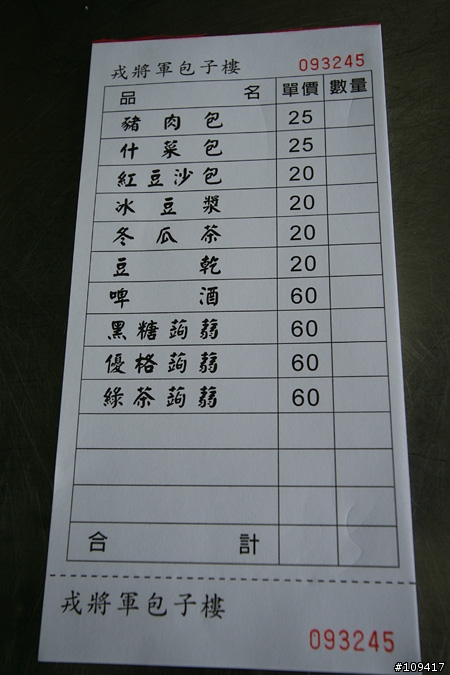 戎將軍包子樓 093245
品名 單價 數量
豬肉包 25
什菜包 25
紅豆沙包 20
冰豆漿 20
冬瓜茶 20
豆乾 20
啤酒 60
黑糖蒟蒻 60
優格蒟蒻 60
綠茶蒟蒻 60
合計
戎將軍包子樓
093245
#109417